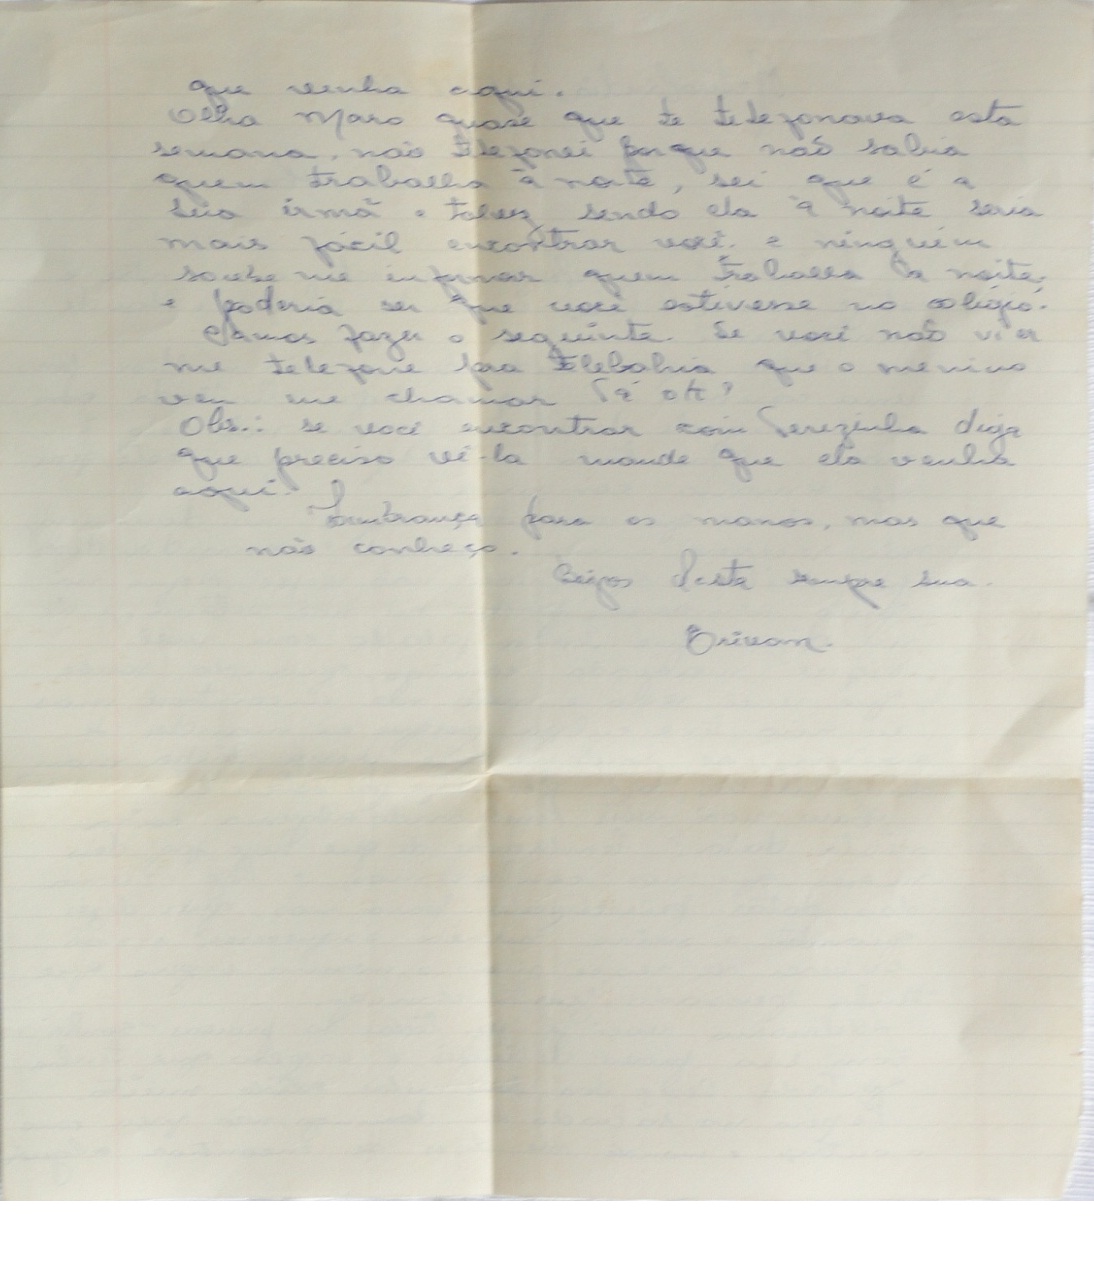 que venha aqui.
Olha Maro quase que te telefonava esta
semana, não telefonei porque não sabia
quem trabalha à noite, sei que é a
sua irmã e talvez sendo ela à noite seria
mais fácil encontrar você, e ninguém
soube me informar quem trabalha à noite,
e poderia ser que você estivesse no colégio.
Vamos fazer o seguinte. Se você não vier
me telefone pra Telebahia que o menino
vem me chamar Tá ok?
Obs.: se você encontrar com Terezinha diga
que preciso vê-la mande que ela venha
aqui.
Lembrança para os manos, mas que
não conheço.
Beijos desta sempre sua.
Erivan.